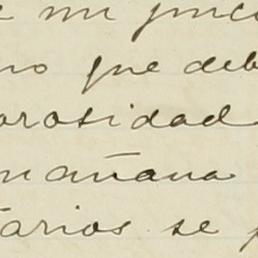 e mi juic
no que deb
orosidad
mañana
tarios se p